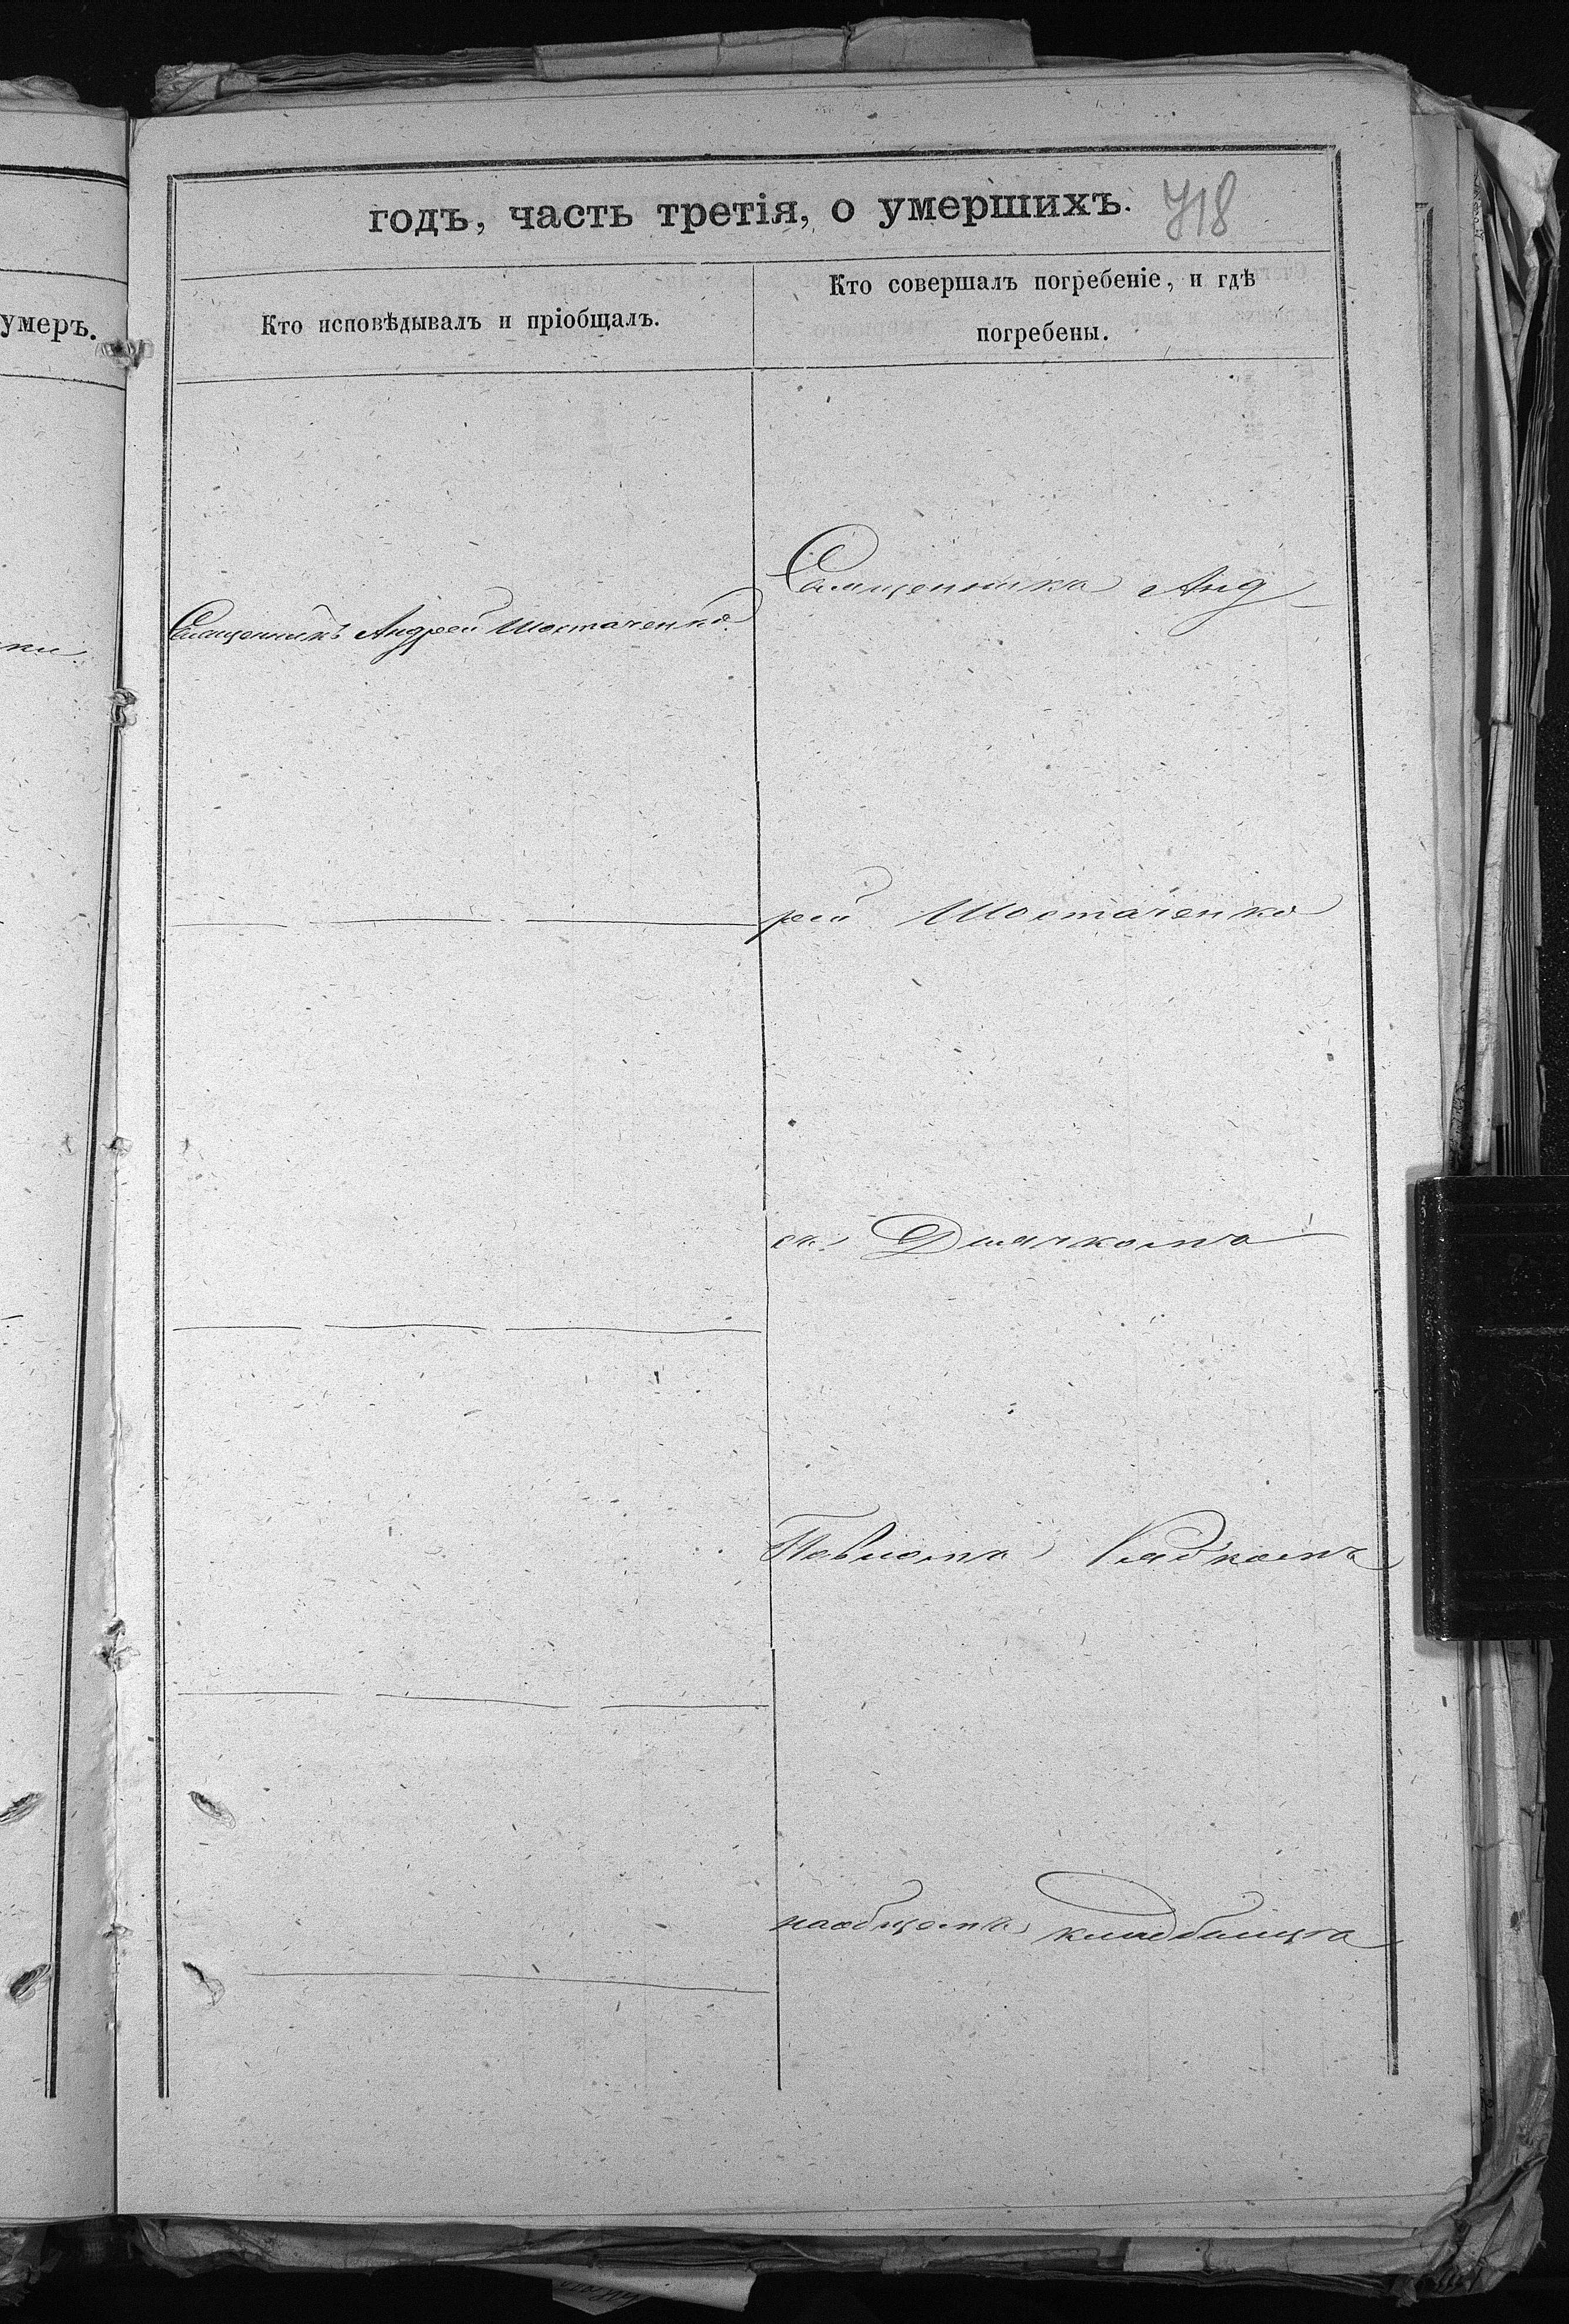 годъ, часть третія, о умершихъ. 718
умеръ.
Кто исповѣдывалъ и пріобщалъ.
Кто совершалъ погребеніе, и гдѣ
погребены.
Священникъ Андрей Шостаченко
Священникъ Анд
рей Шостаченко
съ Дьячкомъ
наобщемъ кладбищѣ